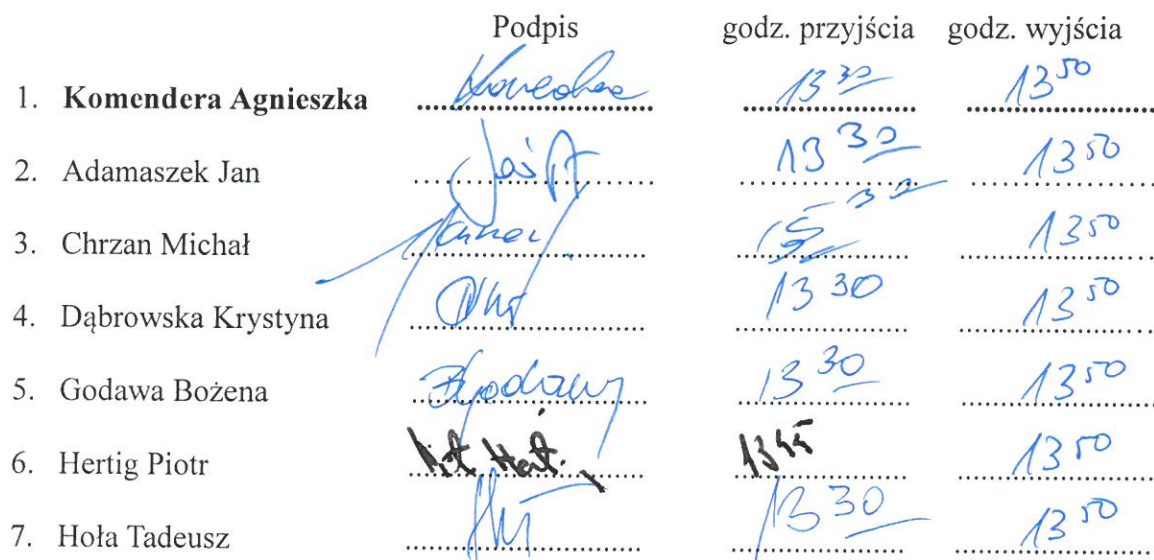 Podpis godz. przyjścia godz. wyjścia
1. Komendera Agnieszka 13 30 13 50
2. Adamaszek Jan 13 30 13 50
3. Chrzan Michał 13 50
4. Dąbrowska Krystyna 13 30 13 50
5. Godawa Bożena 13 30 13 50
6. Hertig Piotr 13 50
7. Hoła Tadeusz 13 30 13 50